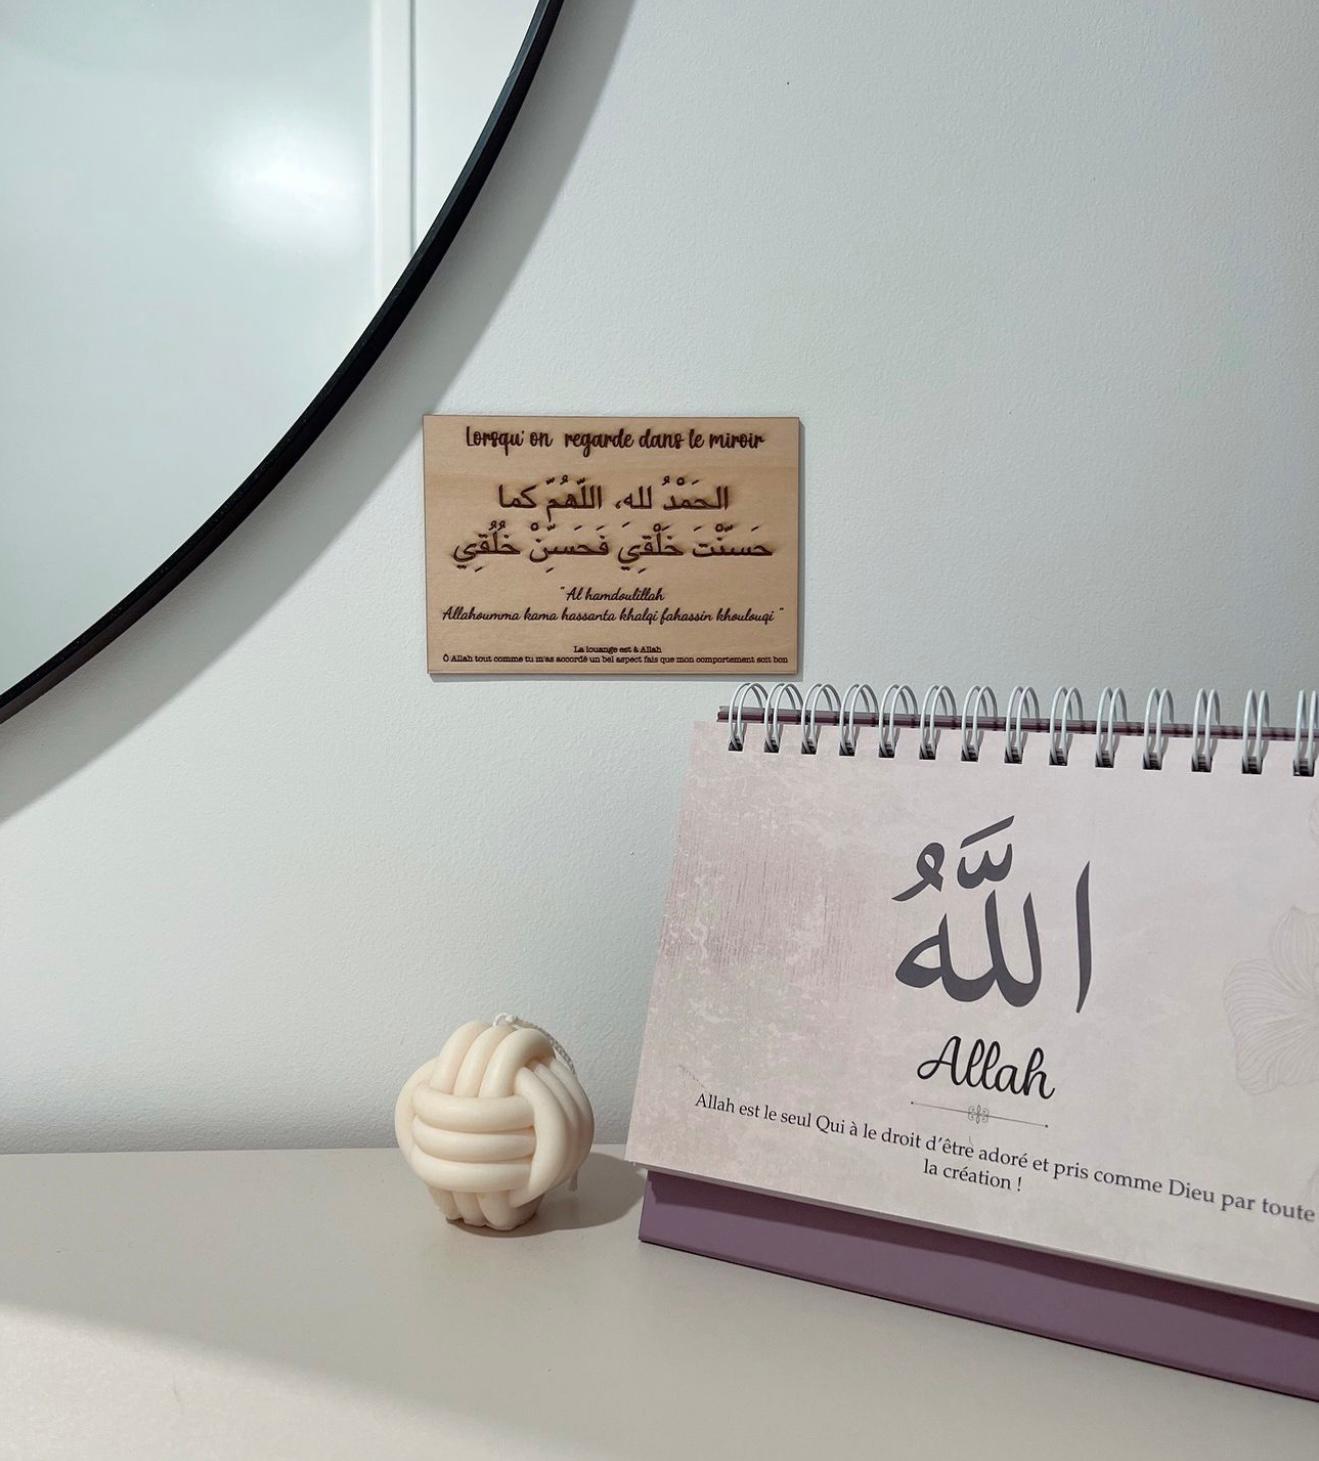 Lorsqu'on regarde dans le miroir
الحَمْدُ لله، اللّهُمّ كما
حَسنّْتَ خَلْقِي فَحَسِنّْ خُلُقِي
"Al hamdoulillah
Allahoumma kama hassanta khalqi fahassin khoulouqi"
La louange est à Allah
Ô Allah tout comme tu m'as accordé un bel aspect fais que mon comportement soit bon
اللَّهُ
Allah
Allah est le seul Qui à le droit d'être adoré et pris comme Dieu par toute
la création !